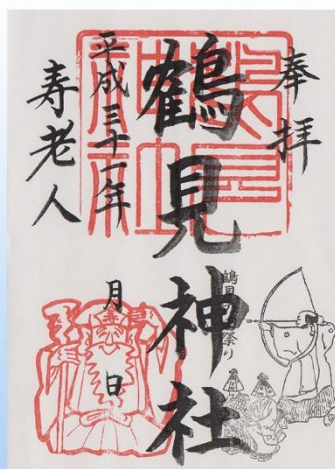 奉拝
鶴見神社
平成三十一年 月 日
寿老人
鶴見神社
鶴見の田祭り
寿